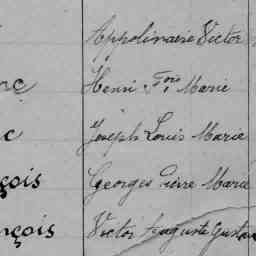 Appolinaire Victor
Henri Fois Marie
Joseph Louis Marie
çois Georges Pierre Marie
nçois Victor Auguste Gustave